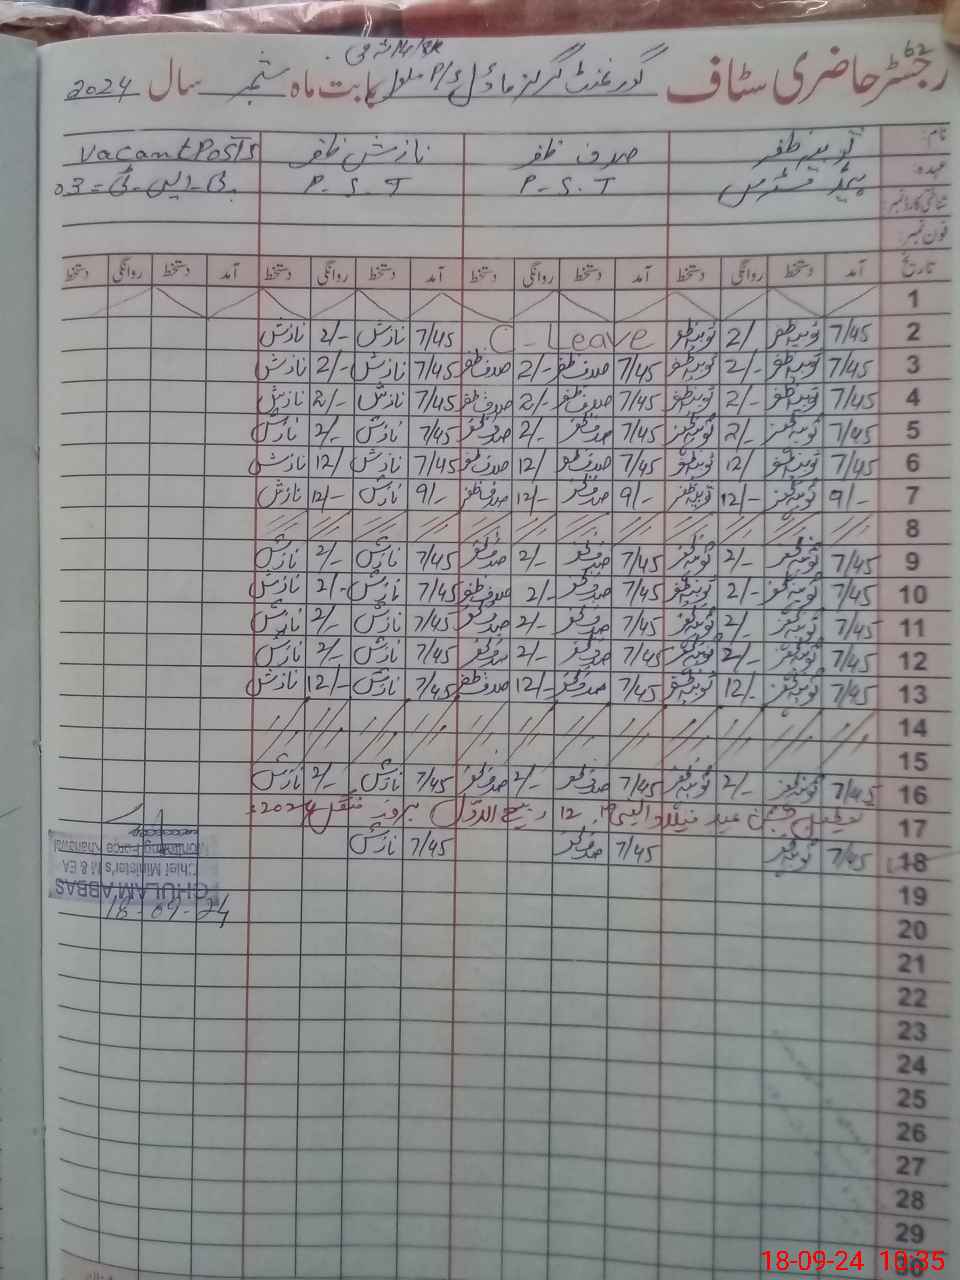 62
رجسٹر حاضری سٹاف گورنمنٹ گرلز ماڈل P/ بابت ماہ ستمبر سال 2024
نام: نوید ظفر صدف ظفر نازش ظفر Vacant Posts
عہدہ: ہیڈ مسٹریس P.S.T P.S.T پی-ایس-ٹی = 03
شناختی کارڈ نمبر:
فون نمبر:
تاریخ آمد دستخط روانگی دستخط آمد دستخط روانگی دستخط آمد دستخط روانگی دستخط آمد دستخط روانگی دستخط
1
2 7/45 نوید ظفر 2/- نوید ظفر C-Leave 7/45 نازش 2/- نازش
3 7/45 نوید ظفر 2/- نوید ظفر 7/45 صدف ظفر 2/- صدف ظفر 7/45 نازش 2/- نازش
4 7/45 نوید ظفر 2/- نوید ظفر 7/45 صدف ظفر 2/- صدف ظفر 7/45 نازش 2/- نازش
5 7/45 نوید ظفر 2/- نوید ظفر 7/45 صدف ظفر 2/- صدف ظفر 7/45 نازش 2/- نازش
6 7/45 نوید ظفر 12/ نوید ظفر 7/45 صدف ظفر 12/ صدف ظفر 7/45 نازش 12/- نازش
7 9/- نوید ظفر 12/- نوید ظفر 9/- صدف ظفر 12/- صدف ظفر 9/- نازش 12/- نازش
8
9 7/45 نوید ظفر 2/- نوید ظفر 7/45 صدف ظفر 2/- صدف ظفر 7/45 نازش 2/- نازش
10 7/45 نوید ظفر 2/- نوید ظفر 7/45 صدف ظفر 2/- صدف ظفر 7/45 نازش 2/- نازش
11 7/45 نوید ظفر 2/- نوید ظفر 7/45 صدف ظفر 2/- صدف ظفر 7/45 نازش 2/- نازش
12 7/45 نوید ظفر 2/- نوید ظفر 7/45 صدف ظفر 2/- صدف ظفر 7/45 نازش 2/- نازش
13 7/45 نوید ظفر 12/- نوید ظفر 7/45 صدف ظفر 12/- صدف ظفر 7/45 نازش 12/- نازش
14
15
16 7/45 نوید ظفر 2/- نوید ظفر 7/45 صدف ظفر 2/- صدف ظفر 7/45 نازش 2/- نازش
17 تعطیل جشن عید میلاد النبی 12 ربیع الاول بروز منگل 2024
18 7/45 نوید ظفر 7/45 صدف ظفر 7/45 نازش
19
20
21
22
23
24
25
26
27
28
29
30
GHULAM ABBAS
Chief Minister's M & EA
Monitoring Force Khanewal
18-09-24
18-09-24 10:35